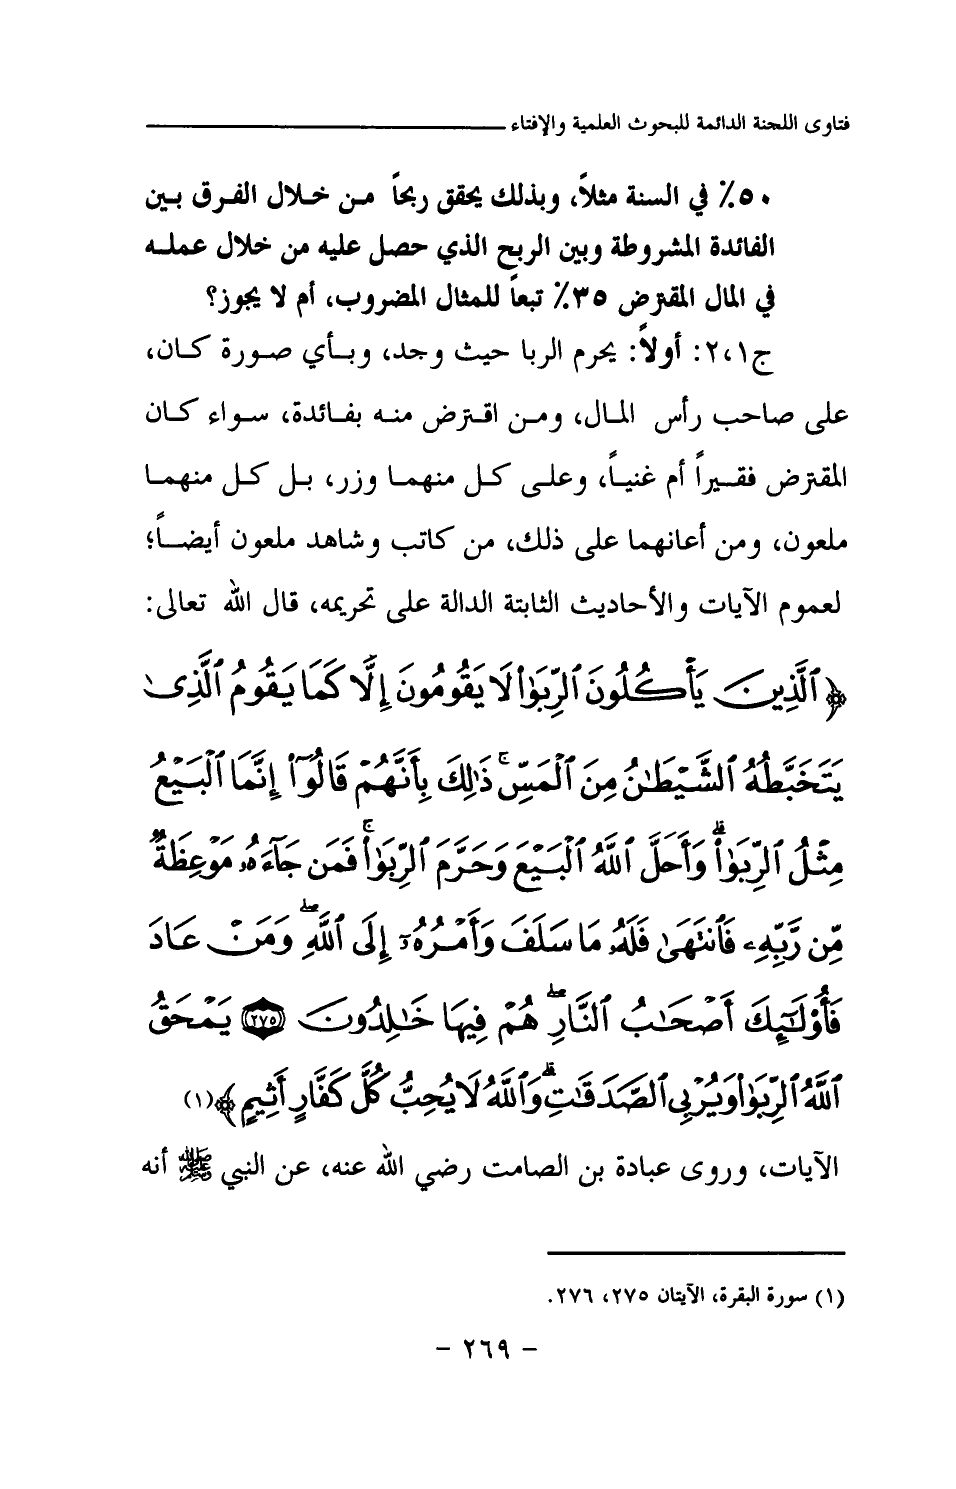 فتاوى اللجنة الدائمة للبحوث العلمية والإفتاء
٥٠٪ في السنة مثلاً، وبذلك يحقق ربحاً من خلال الفرق بين
الفائدة المشروطة وبين الربح الذي حصل عليه من خلال عمله
في المال المقترض ٣٥٪ تبعاً للمثال المضروب، أم لا يجوز؟
ج٢،١: أولاً: يحرم الربا حيث وجد، وبأي صورة كان،
على صاحب رأس المال، ومن اقترض منه بفائدة، سواء كان
المقترض فقيراً أم غنياً، وعلى كل منهما وزر، بل كل منهما
ملعون، ومن أعانهما على ذلك، من كاتب وشاهد ملعون أيضاً؛
لعموم الآيات والأحاديث الثابتة الدالة على تحريمه، قال الله تعالى:
﴿ٱلَّذِينَ يَأْكُلُونَ ٱلرِّبَوٰا۟ لَا يَقُومُونَ إِلَّا كَمَا يَقُومُ ٱلَّذِى
يَتَخَبَّطُهُ ٱلشَّيْطَٰنُ مِنَ ٱلْمَسِّ ۚ ذَٰلِكَ بِأَنَّهُمْ قَالُوٓا۟ إِنَّمَا ٱلْبَيْعُ
مِثْلُ ٱلرِّبَوٰا۟ ۗ وَأَحَلَّ ٱللَّهُ ٱلْبَيْعَ وَحَرَّمَ ٱلرِّبَوٰا۟ ۚ فَمَن جَآءَهُۥ مَوْعِظَةٌ
مِّن رَّبِّهِۦ فَٱنتَهَىٰ فَلَهُۥ مَا سَلَفَ وَأَمْرُهُۥٓ إِلَى ٱللَّهِ ۖ وَمَنْ عَادَ
فَأُو۟لَٰٓئِكَ أَصْحَٰبُ ٱلنَّارِ ۖ هُمْ فِيهَا خَٰلِدُونَ ٢٧٥ يَمْحَقُ
ٱللَّهُ ٱلرِّبَوٰا۟ وَيُرْبِى ٱلصَّدَقَٰتِ ۗ وَٱللَّهُ لَا يُحِبُّ كُلَّ كَفَّارٍ أَثِيمٍ﴾(١)
الآيات، وروى عبادة بن الصامت رضي الله عنه، عن النبي ﷺ أنه
(١) سورة البقرة، الآيتان ٢٧٥، ٢٧٦.
- ٢٦٩ -